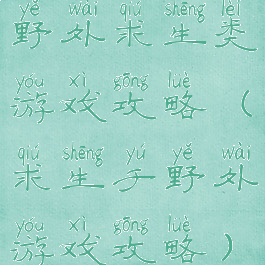 yě wài qiú shēng lèi
野外求生类
yóu xì gōng lüè
游戏攻略（
qiú shēng yú yě wài
求生于野外
yóu xì gōng lüè
游戏攻略）